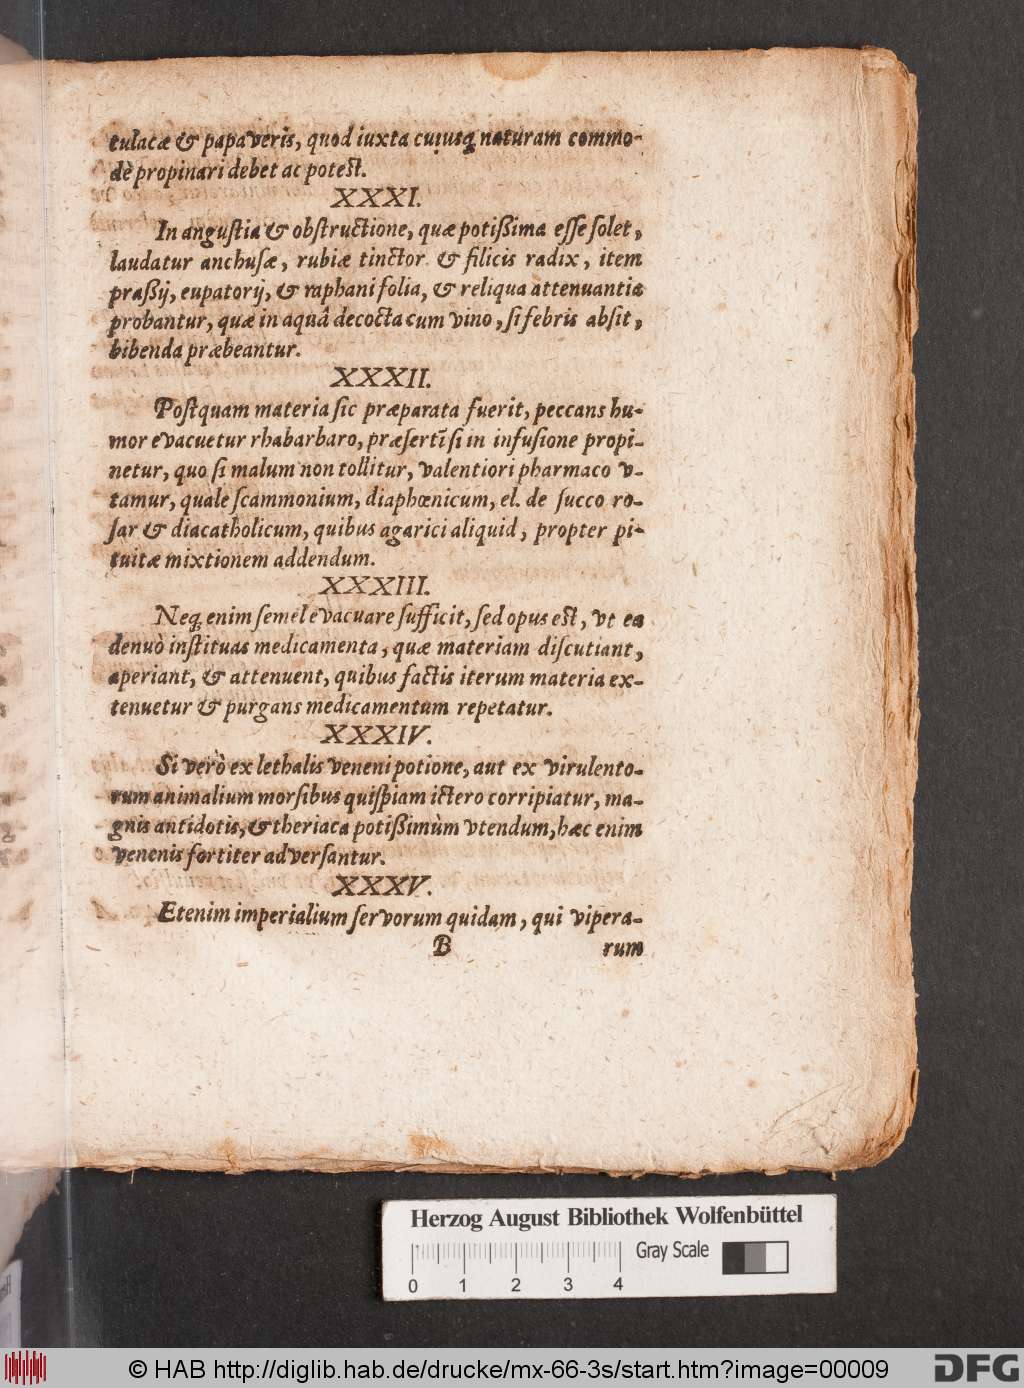 tulacæ & papaveris, quod iuxta cuiusq́ naturam commo-
dè propinari debet ac potest.
XXXI.
In angustia & obstructione, quæ potißima esse solet,
laudatur anchusæ, rubiæ tinctor. & filicis radix, item
praßij, eupatorij, & raphani folia, & reliqua attenuantia
probantur, quæ in aquâ decocta cum vino, si febris absit,
bibenda præbeantur.
XXXII.
Postquam materia sic præparata fuerit, peccans hu-
mor evacuetur rhabarbaro, præsertī si in infusione propi-
netur, quo si malum non tollitur, valentiori pharmaco v-
tamur, quale scammonium, diaphœnicum, el. de succo ro-
sar & diacatholicum, quibus agarici aliquid, propter pi-
tuitæ mixtionem addendum.
XXXIII.
Neq́ enim semel evacuare sufficit, sed opus est, vt ea
denuò instituas medicamenta, quæ materiam discutiant,
aperiant, & attenuent, quibus factis iterum materia ex-
tenuetur & purgans medicamentum repetatur.
XXXIV.
Si verò ex lethalis veneni potione, aut ex virulento-
rum animalium morsibus quispiam ictero corripiatur, ma-
gnis antidotis, & theriaca potißimùm vtendum, hæc enim
venenis fortiter adversantur.
XXXV.
Etenim imperialium servorum quidam, qui vipera-
B rum
Herzog August Bibliothek Wolfenbüttel
Gray Scale
0 1 2 3 4
© HAB http://diglib.hab.de/drucke/mx-66-3s/start.htm?image=00009
DFG